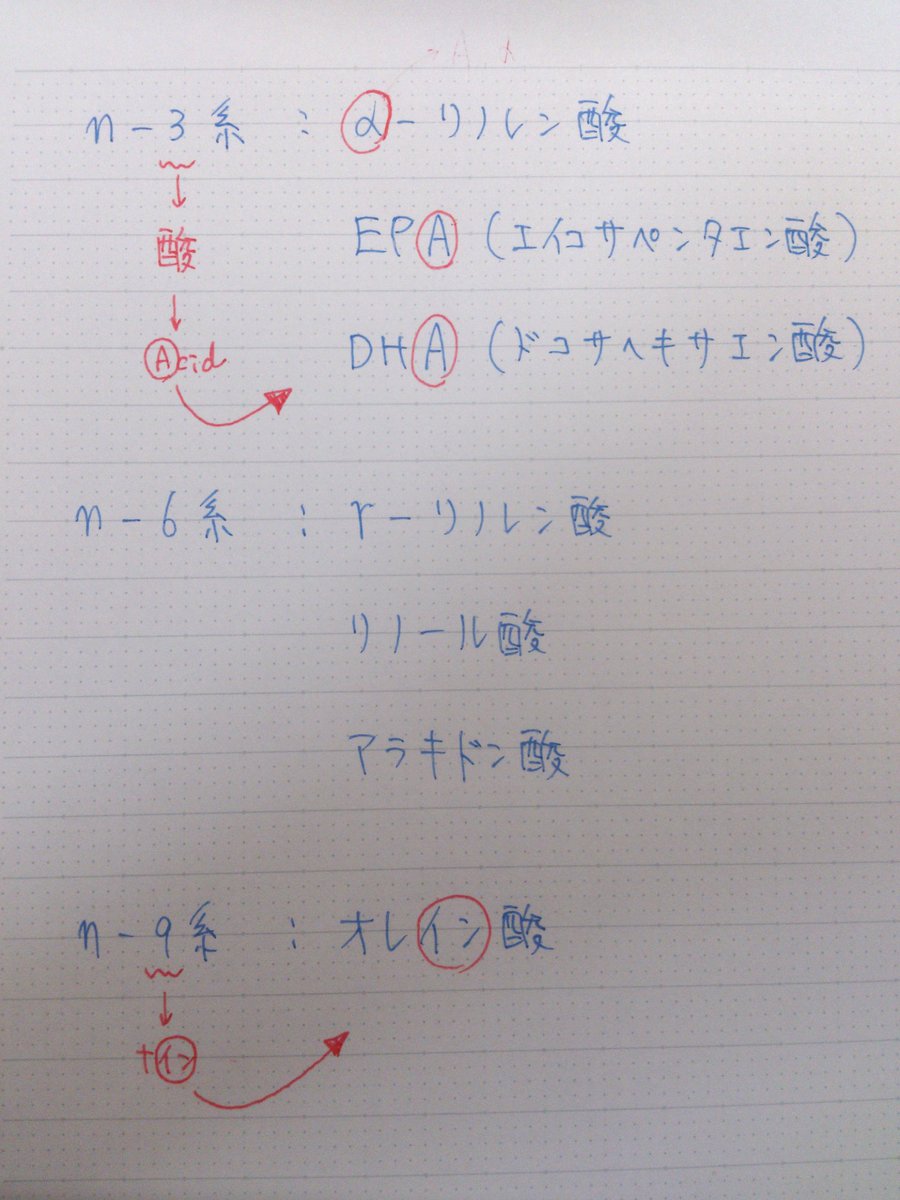 n-3系 : α-リノレン酸
↓
酸 EPA (エイコサペンタエン酸)
↓
Acid DHA (ドコサヘキサエン酸)
n-6系 : γ-リノレン酸
リノール酸
アラキドン酸
n-9系 : オレイン酸
↓
ナイン